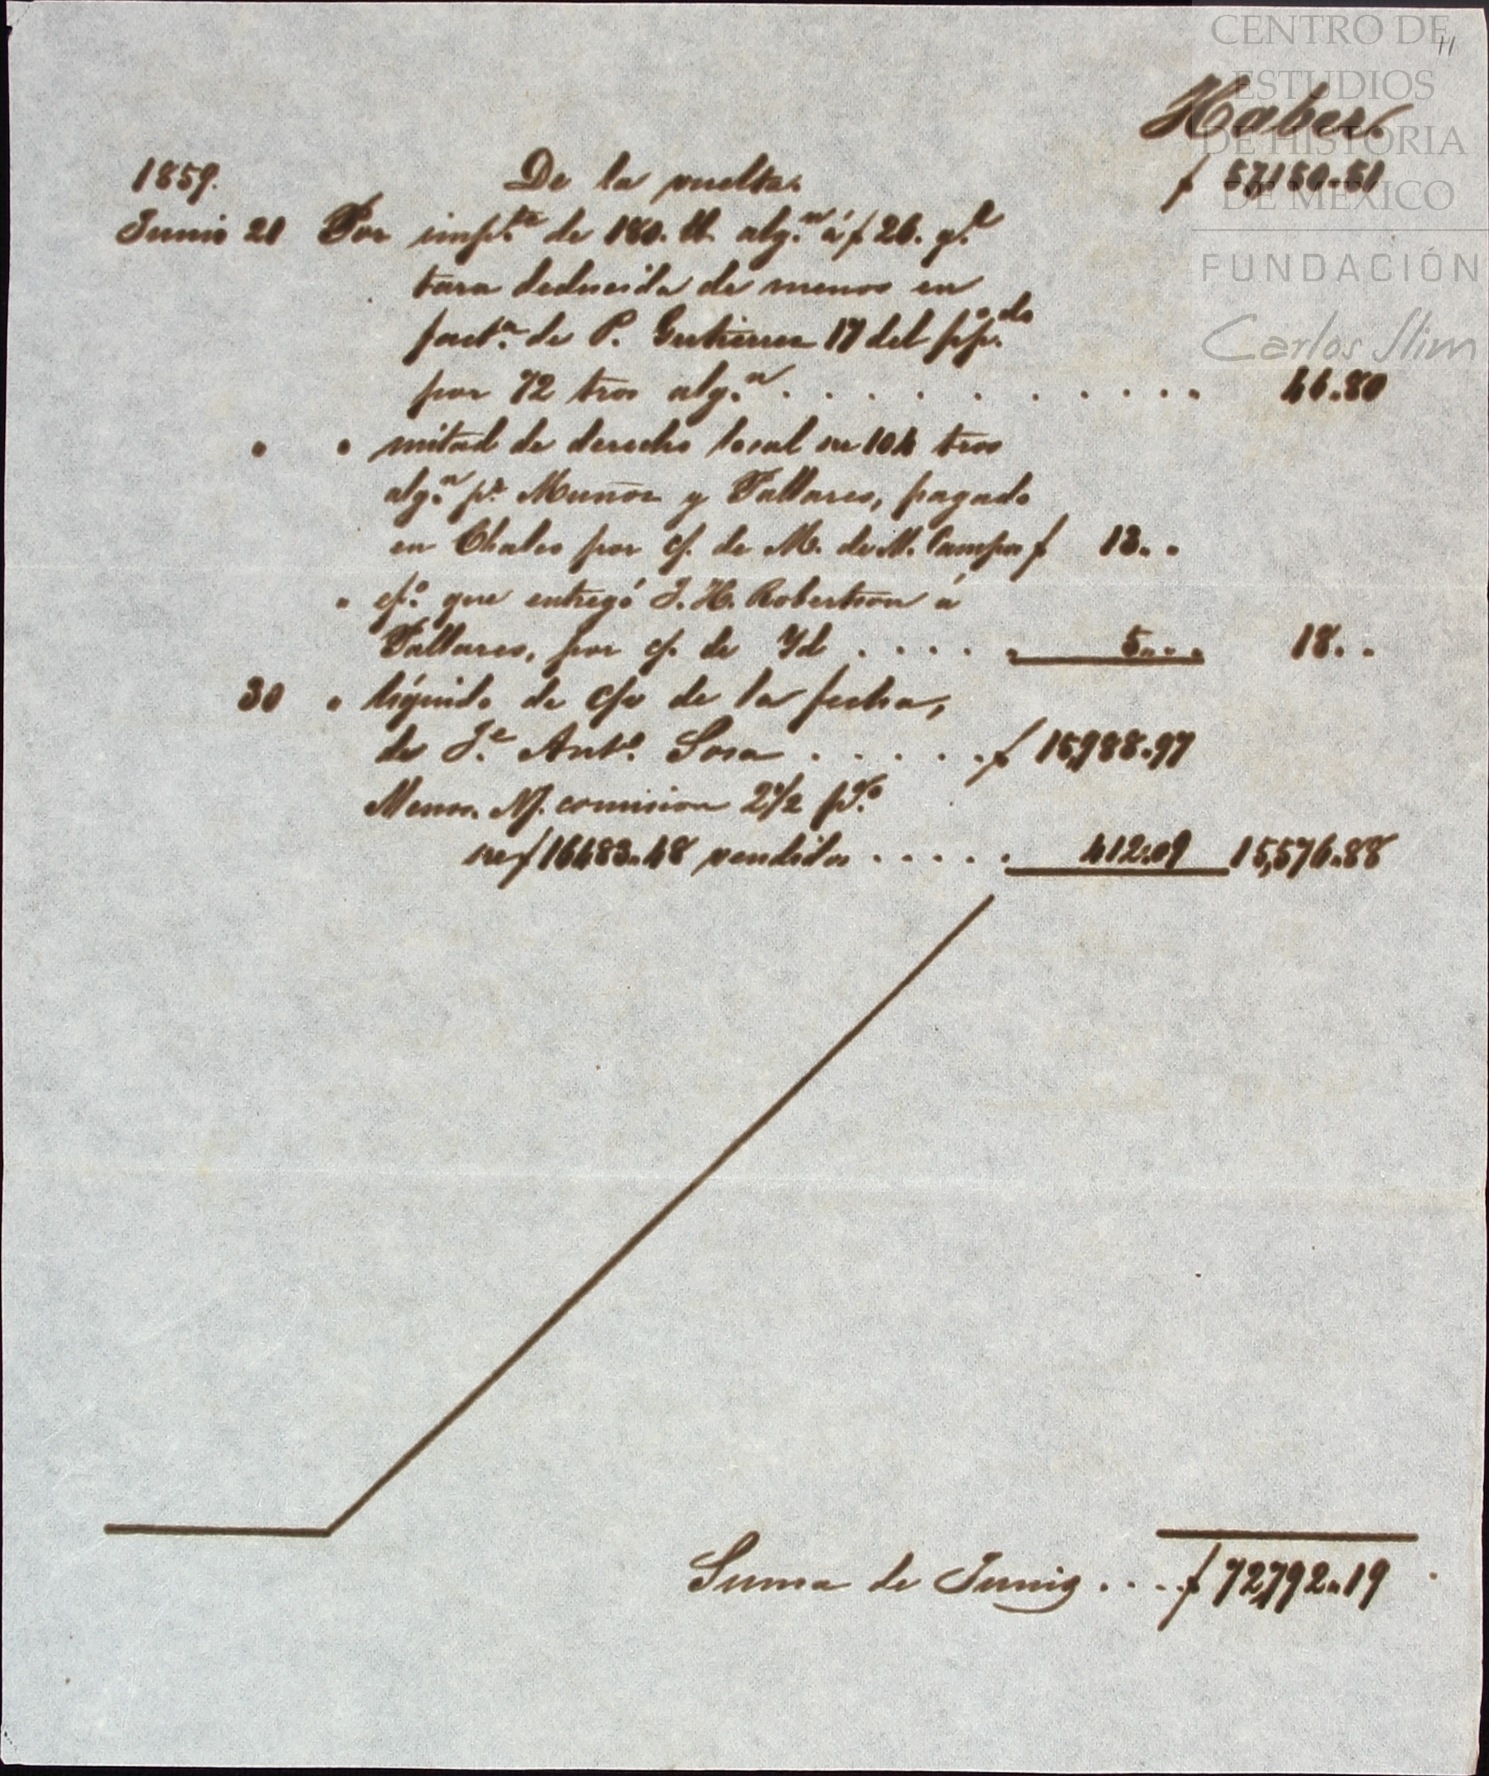 CENTRO DE
ESTUDIOS
DE HISTORIA
DE MÉXICO
FUNDACIÓN
Carlos Slim
11
Haber.
1859. De la vuelta. $ 57150.51
Junio 21 Por imp.te de 180. lb. alg.n á $ 26. q.l
tara deducida de menos en
fact.a de P. Gutierrez 17 del pp.do
por 72 tros alg.n . . . . . . . . . . . 46.80
" " mitad de derecho local s/e 104 tros
alg.n p.a Muñoz y Pallares, pagado
en Chalco por c/. de M. de M. Campos $ 13. .
" ef.o que entregó J. H. Robertson á
Pallares, por c/. de Yd . . . . " 5. . . 18. .
30 " líquido de c/v de la fecha,
de J.e Ant.o Sosa . . . . . $ 15,988.97
Menos. N/. comision 2 1/2 p%
s/e $ 16483.48 vendidos . . . . . 412.09 15,576.88
Suma de Junio . . . . $ 72,792.19